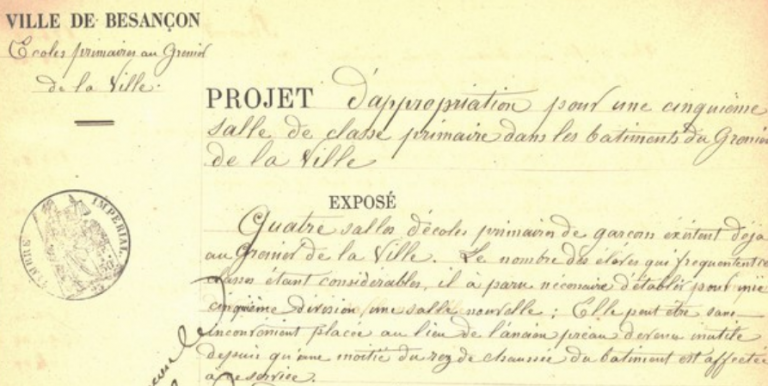 VILLE DE BESANÇON
Ecoles primaires au Grenier
de la Ville.
PROJET d'appropriation pour une cinquième
salle de classe primaire dans les batiments du Grenier
de la Ville
TIMBRE IMPERIAL
EXPOSÉ
Quatre salles d'écoles primaires de garçons existent déjà
au Grenier de la Ville. Le nombre des élèves qui frequentent ces
classes étant considérable, il à paru nécessaire d'établir pour une
cinquième division une salle nouvelle ; Elle peut être sans
inconvénient placée au lieu de l'ancien préau devenu inutile
depuis qu'une moitié du rez de chaussée du batiment est affectée
à ce service.